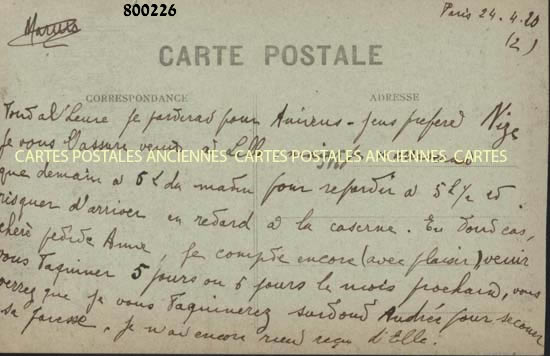 800226
Paris 24.4.20
(2)
CARTE POSTALE
CORRESPONDANCE
ADRESSE
Tout à l'heure je partirai pour Amiens
je vous l'assure venir à Lille
CARTES POSTALES ANCIENNES CARTES POSTALES ANCIENNES CARTES
que demain à 6h du matin pour repartir à 5h ½ et
risquer d'arriver en retard à la caserne. En tout cas,
chère petite Amie, je compte encore (avec plaisir), venir
vous taquiner 5 jours ou 6 jours le mois prochain, vous
verrez que je vous taquinerez surtout Andrée pour secouer
sa paresse, je n'ai encore rien reçu d'Elle.